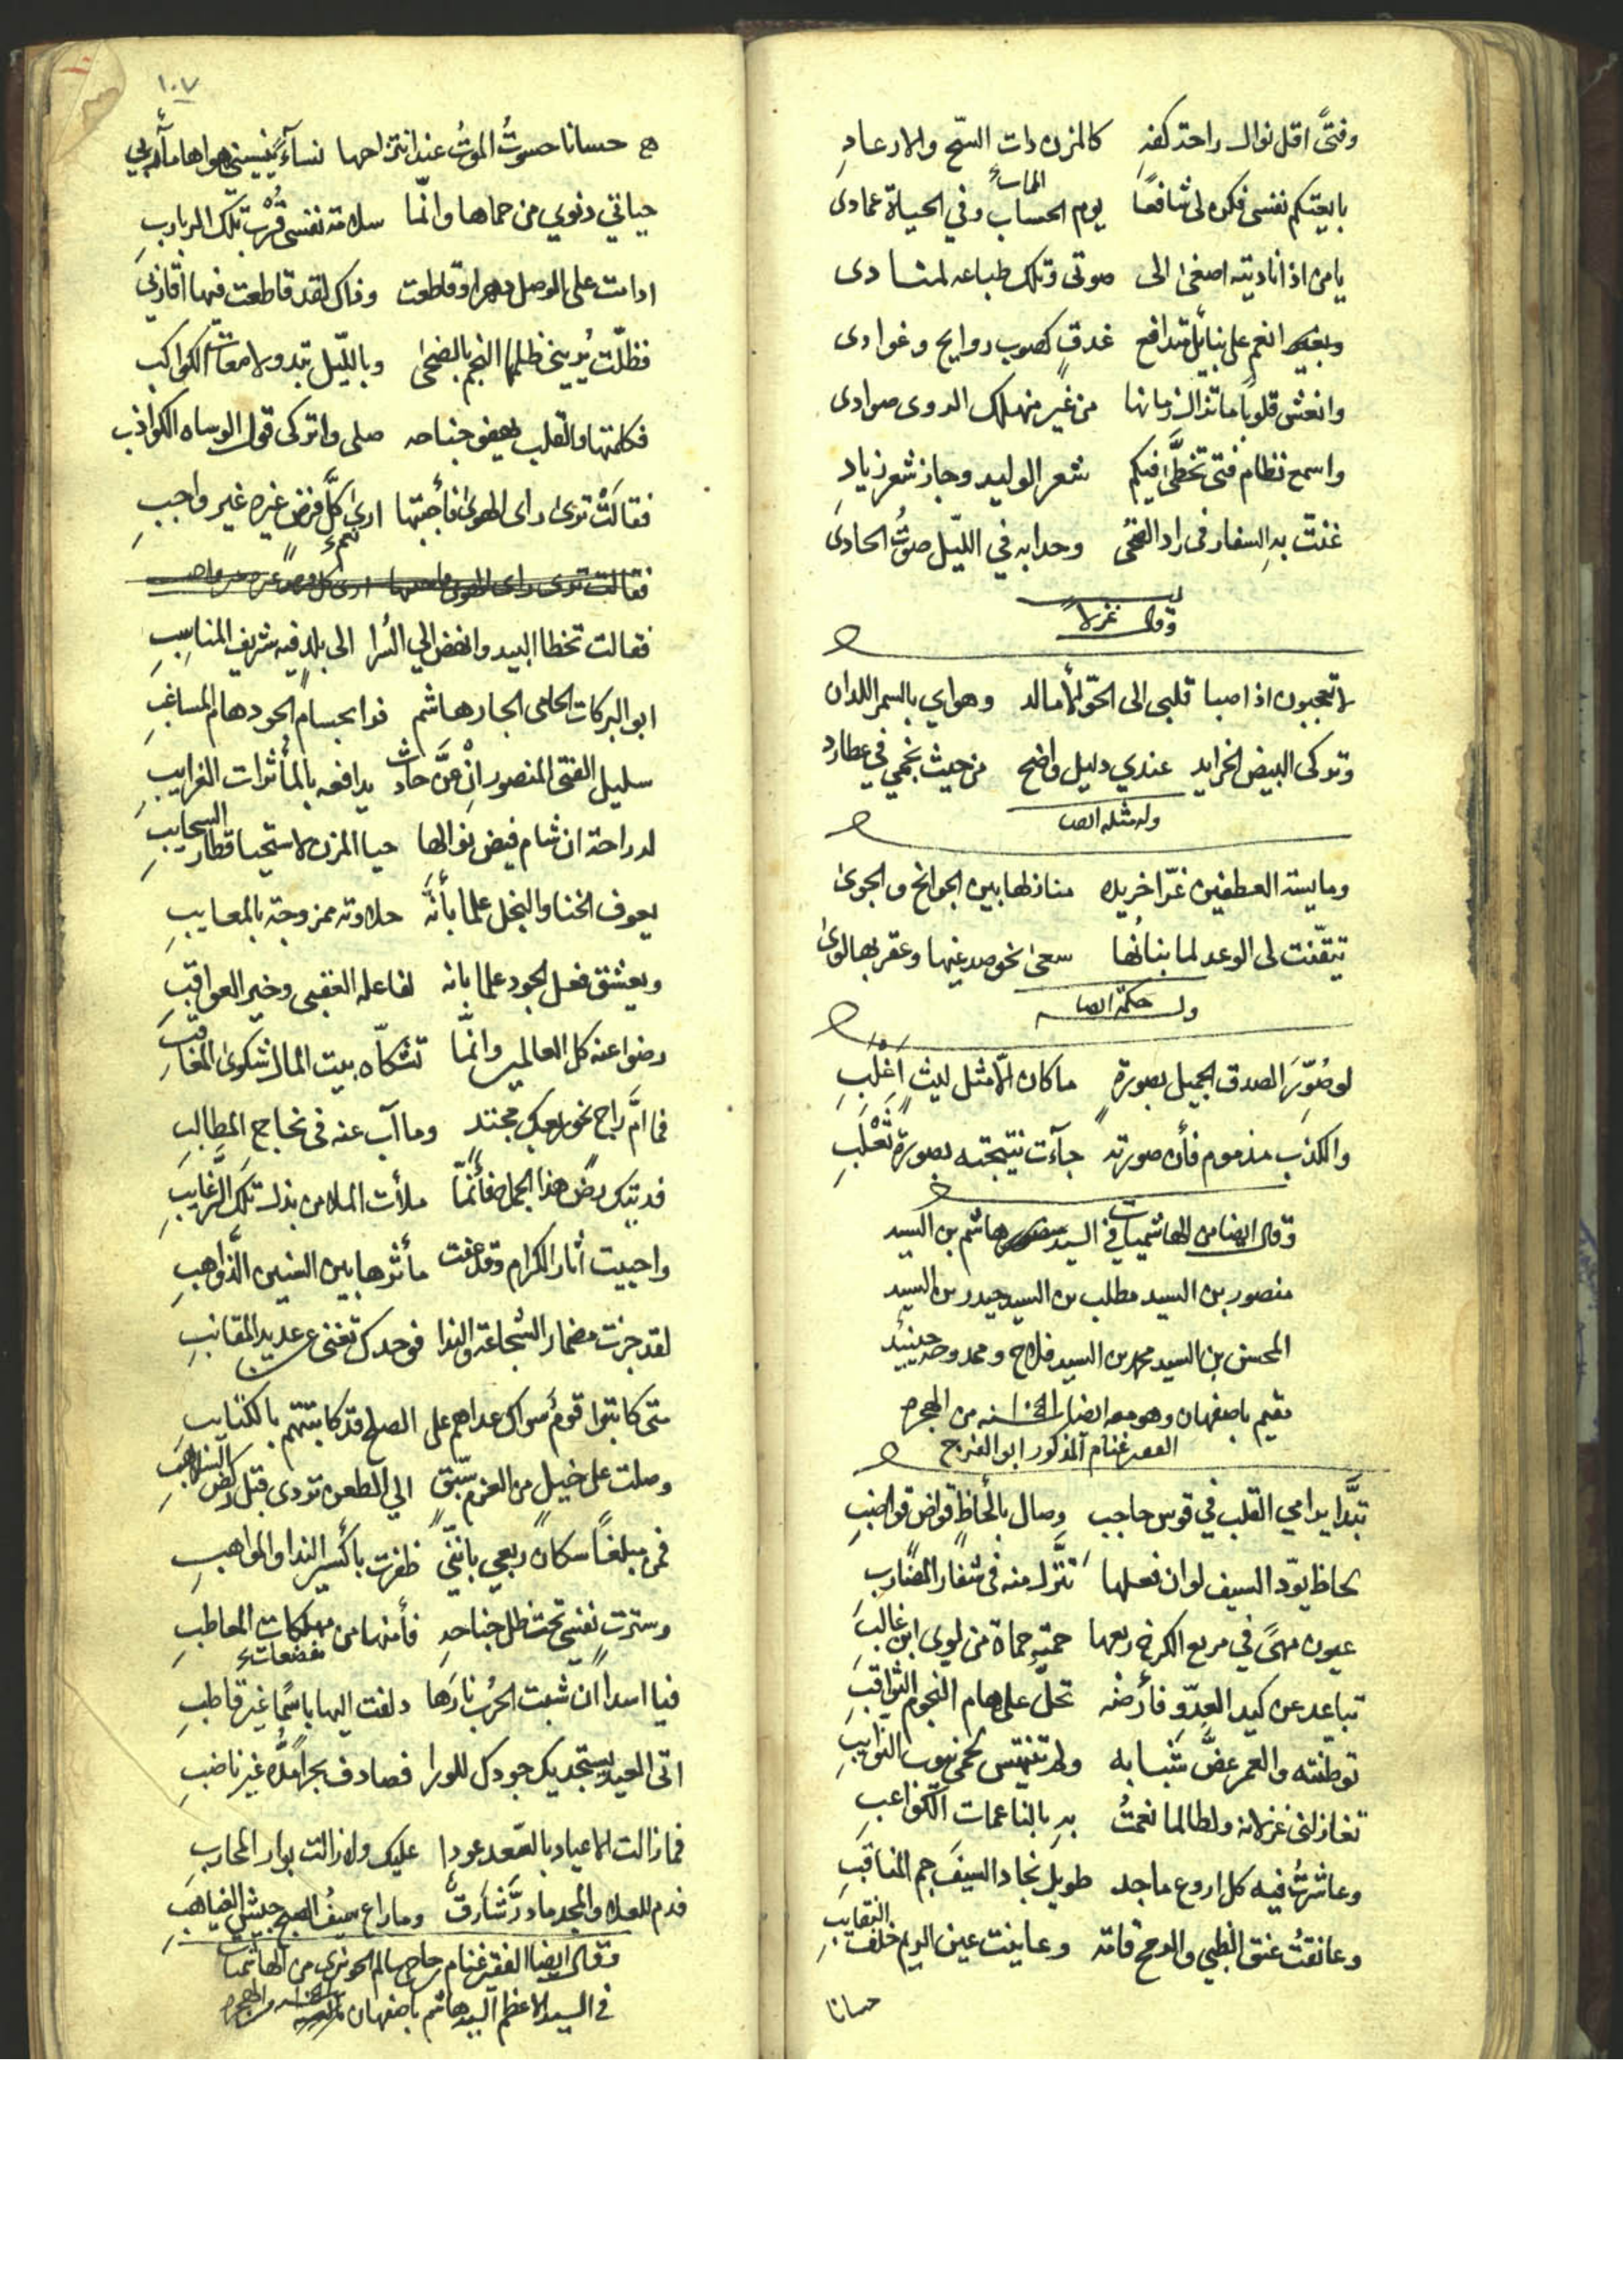 وفتىً اقل نوال راحة كفهِ كالمزن ذات السّح والارعادِ
الممات
بايعتكم نفسى فكن لى شافعًا يوم الحساب وفي الحياة عمادى
يا من اذا ناديته اصغى الى صوتى وتلك طباعه لمنادى
انعم على بنايل متدافع غدقٍ كصوب روايح وغوادى
وانعش قلوباً ما تزال زمانها من غير منهلك الروى صوادى
واسمع نظام فتى تخطّى فيكم شعر الوليد وجاز شعر زيادِ
غنت به السفار فى راد الضحى وحدا به في الليل صوتُ الحادى
وقال غزلاً
لا تعجبون اذا صبا قلبى الى وهواي بالسمر اللدان
وتركى البيض الخرايد عندي دليل واضح من حيث نجمي في عطارد
وله مثله ايضا
ومايسة العطفين غرّا خريده منازلها بين الجوانح والجوى
تيقّنت لى الوعد لما بنانُها سعى نحو صدغيها وعقربها لوى
وله حكمة ايضا
لو صُوّرَ الصدق الجميل بصورةٍ ما كان الّا مثل ليث اغلبِ
والكذب مذموم فأن صورته جآءت نتيجته بصورة ثعلبِ
وقال ايضا من الهاشميات في السيد هاشم بن السيد
منصور بن السيد مطلب بن السيد حيدر بن السيد
المحسن بن السيد محمد بن السيد فلاح وممدوحه حينئيذ
مقيم باصفهان وهو معه ايضا سنه من الهجره
غنام المذكور ابو الفرج
تبدّا يرامي القلب في قوس حاجب وصال بالحاظٍ قواض قواضبِ
لحاظ يودّ السيف لو ان فعلها تنزّل منه فى شفار المضاربِ
عيون مهىً في مربع الكرخ ربعها حمته حماة من لوى ابن غالبِ
تباعد عن كيد العدّو فأرضه تحلّ على هام النجوم الثواقبِ
توطّنته والعمر غضَّ شبابه ولم تنتهس لحمى نيوب النوايبِ
تغازلنى غزلانه ولطالما نعمتُ بهِ بالناعمات الكواعبِ
وعاشرتُ فيه كل اروع ماجد طويل نجاد السيف جم المناقبِ
وعانقتُ عنق الظبي والرمح قامة وعاينت عين الريم خلف النقايبِ
حسانا
١٠٧
حسانا حسوتُ الموتُ عند انتزاحها نسآءً ينسينى هواها مآربي
حياتي دنوي من حماها وانّما سلامة نفسى قُرْبُ تلك الربارب
ادامت على الوصل دهرا وقاطعت وفاك لقد قاطعت فيها اقاربي
فظلّت يُريني ظلمها النجم بالضحى وبالليل تبدو لامعات الكواكب
فكلمتها والقلب يهفو جناحه صلى واتركى قول الوساه الكواذب
فقالتْ ترى راى الهوى فأجبتها ارى كلَّ فرض غيره غير واجبِ
فقالت ترى راى الهوى فاجبتها ارى كل فرض غيره غير واجب
فقالت تخطا البيد وانهض الي السُرا الى بلدٍ فيه شريف المناسبِ
ابو البركات الحامى الجار هاشم فرا بحسام الجود هام المساغبِ
سليل الفتى المنصور انْ عنَّ حادث يدافعه بالمأثرات الغرايبِ
له راحة ان شام فيض نوالها حيا المزن لاستحيا قطار السحايبِ
يعوف الخنا والبخل علما بأنّه حلاوته ممزوجة بالمعايبِ
ويعشق فعل الجود علما بانه لفاعله العقبى وخير العواقبِ
رضوا عنه كل العالمين وانّما تشكّاه بيت المال شكوى المغاربِ
فما امَّ راج نحو ربعك مجتدٍ وما آب عنه فى نجاح المطالبِ
فديتك هذا الحمل فأنّما ملأت الملا من بذل تلك الرّغايبِ
واحييت اثار الكرام وقد عفت مأثرها بين السنين الذواهبِ
لقد جزت مضمار الشجاعة والندا فوحدك تغنى عن عديد المقانبِ
متى كاتبوا قومُ سواك عداهم على الصلح قد كاتبتهم بالكتايبِ
وصلت على خيلٍ من العزم سبّقٍ الي الطعن تودى قبل ركض السلاهبِ
فمن مبلغاً سكان ربعي باننّي ظفرت باكسير الندا والمواهبِ
وسترت نفسي تحت ظل جناحهِ فأمنها من مهلكات المعاطبِ
فيا اسداً ان شبت الحرُب نارَها دلفت اليها باسمًا غير قاطبِ
اتى العيد يستجديك جودك للورا فصادف بحراً مدُّه غير ناضبِ
فما زالت الاعياد بالسّعد عودا عليك ولا زالت بوار المحاربِ
فدم للعلاء والمجد ما درَّ شارقٌ وما راع سيفُ الصبح جيش الغياهبِ
وقال ايضا الفقير غنام من الهاشميات
في السيد الاعظم السيد هاشم باصفهان